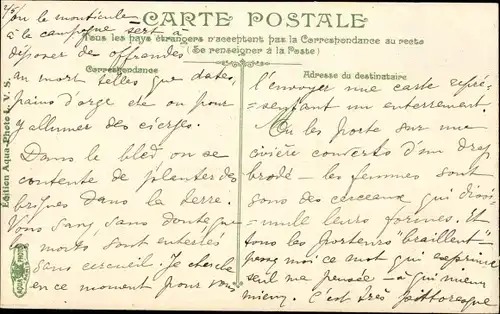 2/5
CARTE POSTALE
Tous les pays étrangers n'acceptent pas la Correspondance au recto
(Se renseigner à la Poste)
Correspondance
Adresse du destinataire
Edition Aqua-Photo L. V. S.
ou le monticule
à la campagne sert à
déposer de offrandes
au mort telles que dates,
pains d'orge etc ou pour
y allumer des cierges.
Dans le bled on se
contente de planter des
briques dans la terre.
Vous savez sans doute que
les morts sont enterrés
sans cercueil. Je cherche
en ce moment pour vous
l'envoyer une carte repré-
-sentant un enterrement.
On les porte sur une
civière couverts d'un drap
brodé - les femmes sont
sous des cerceaux qui dissi-
-mule leurs formes. Et
tous les porteurs "braillent" -
passez moi ce mot qui exprime
seul ma pensée - à qui mieux
mieux. C'est très pittoresque